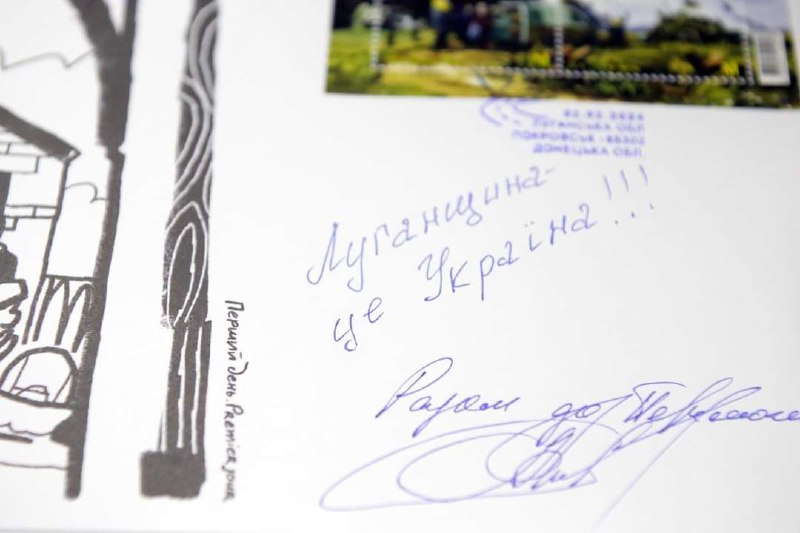 ЛУГАНСЬКА ОБЛ
ПОКРОВСЬК -85302
ДОНЕЦЬКА ОБЛ.
Луганщина -
це Україна!!!
Разом до Перемоги
Перший день. Premier jour